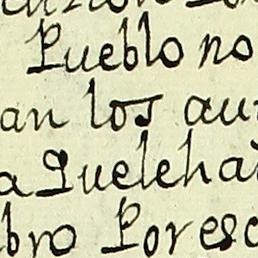 Pueblo no
an los au
a Queleha
bro Poresc